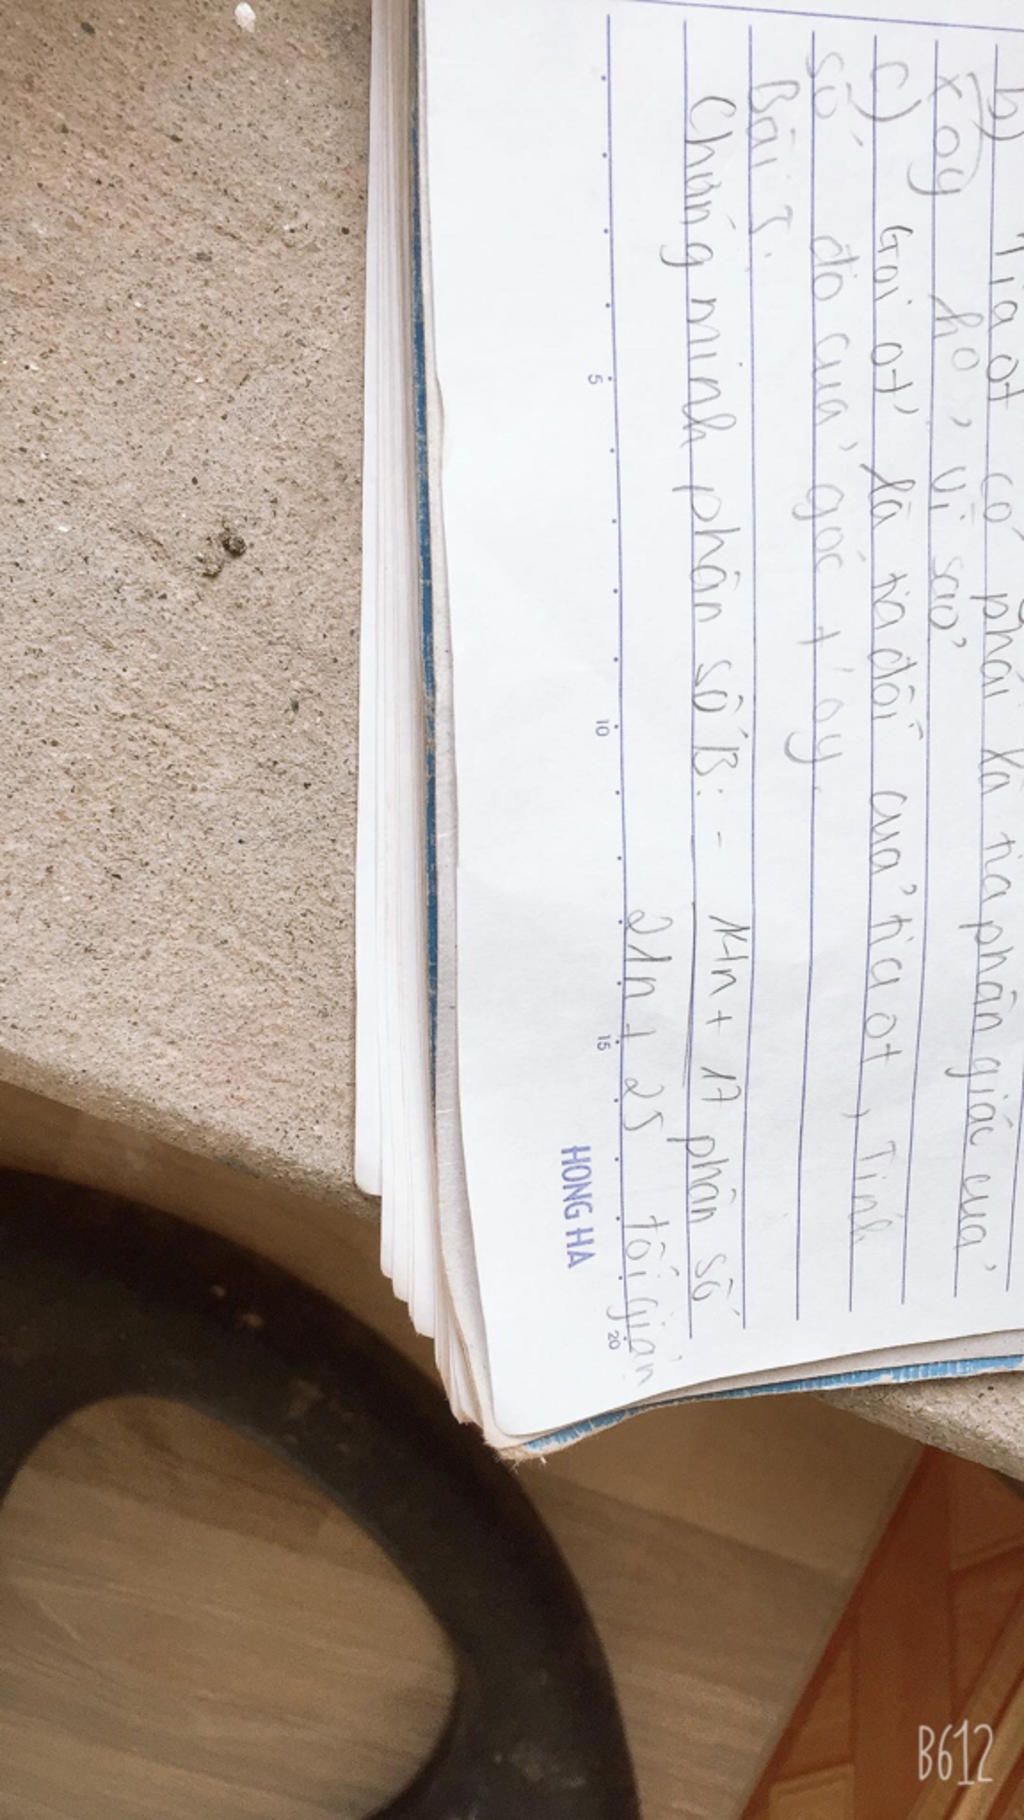 b) Tia ot có phải là tia phân giác của
xoy ko, vì sao?
c) Gọi ot' là tia đối của tia ot, Tính
số đo của góc t'oy.
Bài 5:
Chứng minh phân số B: - 14n + 17 phân số
21n + 25 tối giản
5 10 15 20
HONG HA
B612